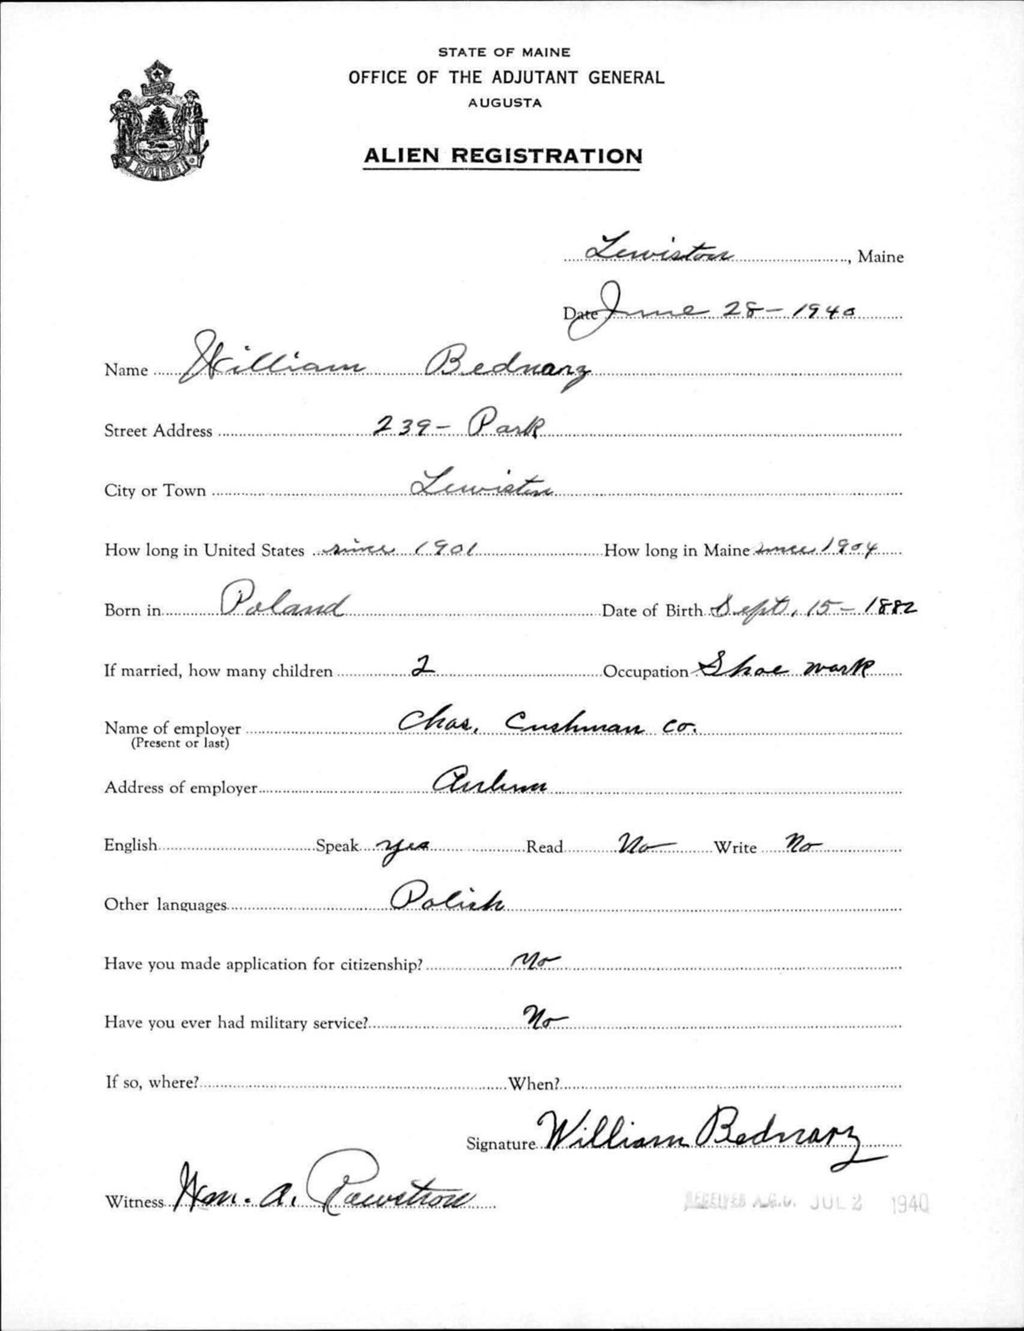 STATE OF MAINE
OFFICE OF THE ADJUTANT GENERAL
AUGUSTA
ALIEN REGISTRATION
MAINE
Lewiston, Maine
Date June 28 - 1940
Name William Bednarz
Street Address 239 - Park
City or Town Lewiston
How long in United States since 1901 How long in Maine since 1904
Born in Poland Date of Birth Sept. 15 - 1882
If married, how many children 2 Occupation Shoe work
Name of employer Chas. Cushman Co.
(Present or last)
Address of employer Auburn
English Speak yes Read No Write No
Other languages Polish
Have you made application for citizenship? No
Have you ever had military service? No
If so, where? When?
Signature William Bednarz
Witness Wm. A. Rawstron
RECEIVED A.G.O. JUL 2 1940